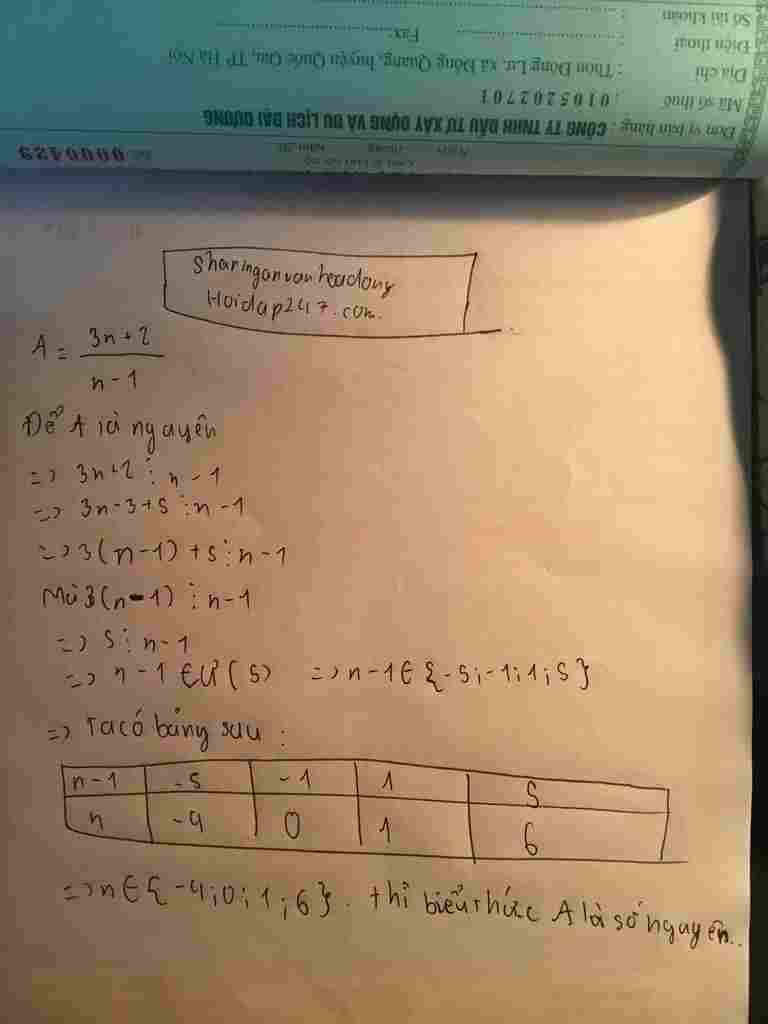 Số tài khoản :
Điện thoại : Fax:
Địa chỉ : Thôn Đồng Lư, xã Đồng Quang, huyện Quốc Oai, TP Hà Nội
Mã số thuế : 0105202701
Đơn vị bán hàng : CÔNG TY TNHH ĐẦU TƯ XÂY DỰNG VÀ DU LỊCH ĐẠI DƯƠNG
0000423
Hoidap247.com.
A = 3n+2
n-1
Để A là nguyên
=> 3n+2 ⋮ n-1
=> 3n-3+5 ⋮ n-1
=> 3(n-1)+5 ⋮ n-1
Mà 3(n-1) ⋮ n-1
=> 5 ⋮ n-1
=> n-1 ∈ Ư(5) => n-1 ∈ {-5;-1;1;5}
=> Ta có bảng sau :
n-1 -5 -1 1 5
n -4 0 1 6
=> n ∈ {-4;0;1;6}. thì biểu thức A là số nguyên..